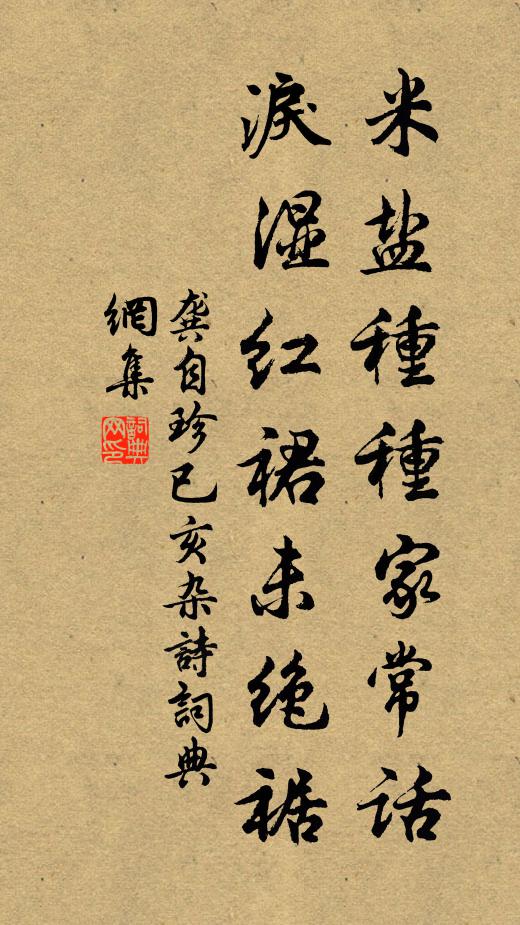 米盐種種家常话
淚湿红裙未绝裾
龚自珍已亥杂詩詞典
網集
詞典网印